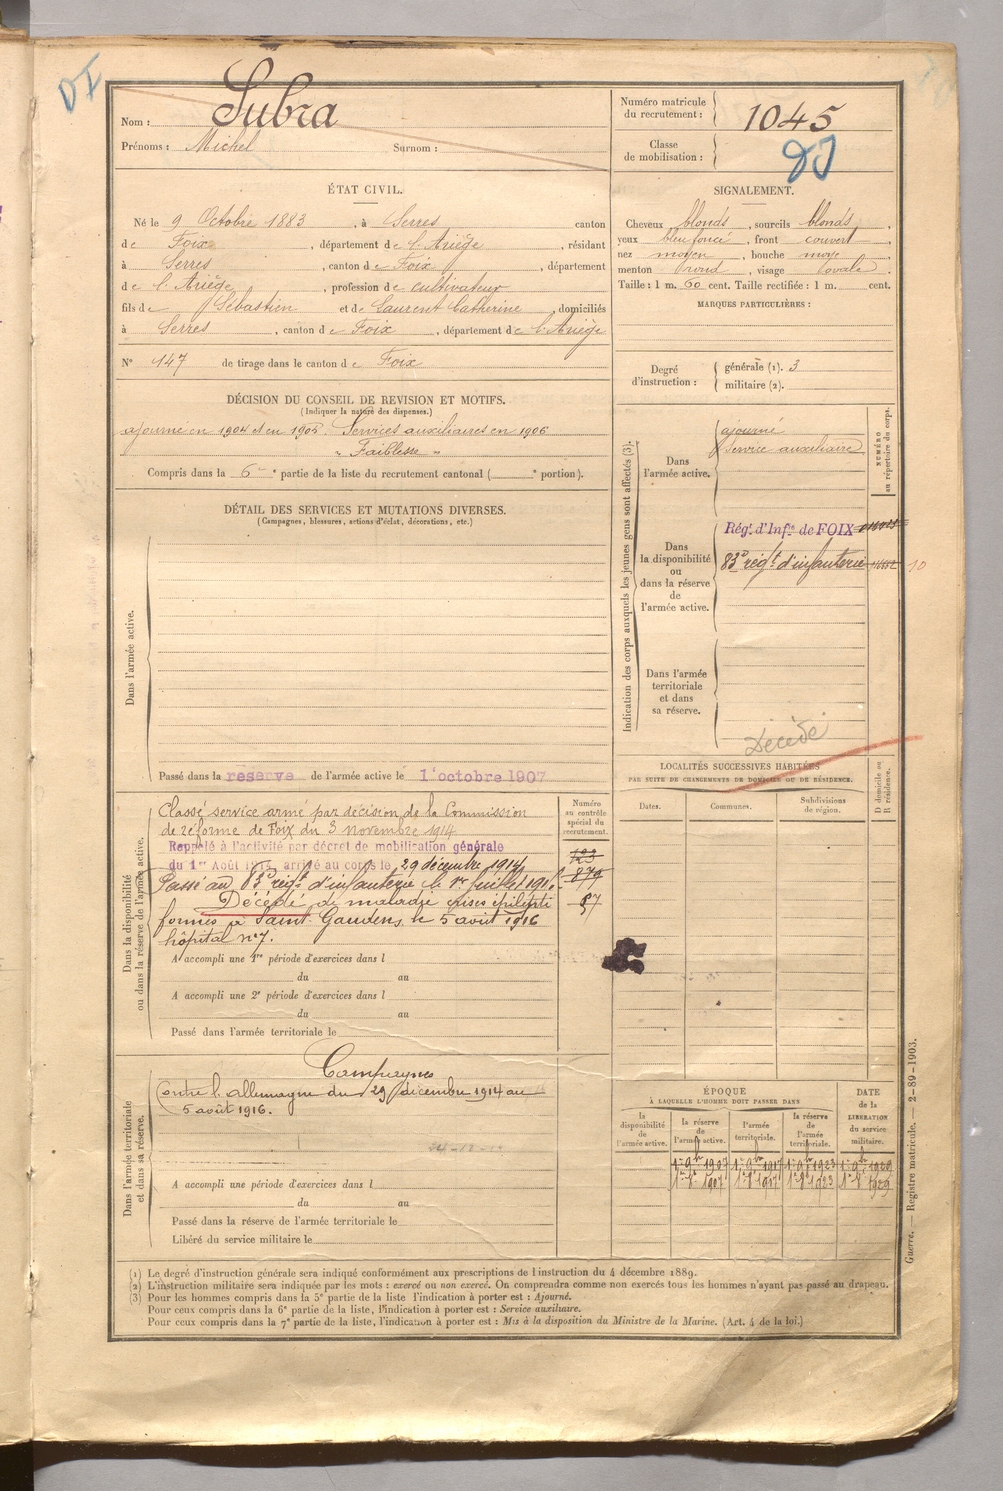 DI
Nom : Subra
Prénoms : Michel Surnom :
Numéro matricule du recrutement : 1045
Classe de mobilisation :
ÉTAT CIVIL.
Né le 9 Octobre 1883, à Serres canton
de Foix, département de l'Ariège, résidant
à Serres, canton de Foix, département
de l'Ariège, profession de cultivateur
fils de Sébastien et de Laurent Catherine, domiciliés
à Serres, canton de Foix, département de l'Ariège
N° 147 de tirage dans le canton de Foix
SIGNALEMENT.
Cheveux blonds, sourcils blonds,
yeux bleu foncé, front couvert,
nez moyen, bouche moye,
menton rond, visage ovale.
Taille : 1 m. 60 cent. Taille rectifiée : 1 m. cent.
MARQUES PARTICULIÈRES :
Degré d'instruction : générale (1). 3
militaire (2).
DÉCISION DU CONSEIL DE REVISION ET MOTIFS.
(Indiquer la nature des dispenses.)
ajourné en 1904 et en 1905 Services auxiliaires en 1906
" Faiblesse "
Compris dans la 6e partie de la liste du recrutement cantonal ( e portion).
DÉTAIL DES SERVICES ET MUTATIONS DIVERSES.
(Campagnes, blessures, actions d'éclat, décorations, etc.)
Dans l'armée active.
Passé dans la réserve de l'armée active le 1 octobre 1907
Indication des corps auxquels les jeunes gens sont affectés (3).
NUMÉRO au répertoire du corps.
Dans l'armée active.
ajourné
Service auxiliaire
Dans la disponibilité ou dans la réserve de l'armée active.
Rég.t d'Inf.ie de FOIX
83e rég.t d'infanterie
10
Dans l'armée territoriale et dans sa réserve.
Décédé
Dans la disponibilité ou dans la réserve de l'armée active.
Numéro au contrôle spécial du recrutement.
Classé service armé par décision de la Commission
de réforme de Foix du 3 novembre 1914
Rappelé à l'activité par décret de mobilisation générale
du 1er Août 1914, arrivé au corps le 29 décembre 1914
Passé au 83e rég.t d'infanterie le 1er juillet 191
Décédé de maladie crises épilepti
formes à Saint-Gaudens le 5 août 1916
hôpital n°7.
A accompli une 1re période d'exercices dans l
du au
A accompli une 2e période d'exercices dans l
du au
Passé dans l'armée territoriale le
LOCALITÉS SUCCESSIVES HABITÉES
PAR SUITE DE CHANGEMENTS DE DOMICILE OU DE RÉSIDENCE.
D domicile ou R résidence.
Dates. Communes. Subdivisions de région.
Dans l'armée territoriale et dans sa réserve.
Campagnes
Contre l'allemagne du 29 décembre 1914 au
5 août 1916.
A accompli une période d'exercices dans l
du au
Passé dans la réserve de l'armée territoriale le
Libéré du service militaire le
ÉPOQUE
À LAQUELLE L'HOMME DOIT PASSER DANS
la disponibilité de l'armée active.
la réserve de l'armée active.
l'armée territoriale.
la réserve de l'armée territoriale.
DATE de la LIBÉRATION du service militaire.
1907 1923 1929
Guerre. — Registre matricule. — 2-89-1903.
(1) Le degré d'instruction générale sera indiqué conformément aux prescriptions de l'instruction du 4 décembre 1889.
(2) L'instruction militaire sera indiquée par les mots : exercé ou non exercé. On comprendra comme non exercés tous les hommes n'ayant pas passé au drapeau.
(3) Pour les hommes compris dans la 5e partie de la liste l'indication à porter est : Ajourné.
Pour ceux compris dans la 6e partie de la liste, l'indication à porter est : Service auxiliaire.
Pour ceux compris dans la 7e partie de la liste, l'indication à porter est : Mis à la disposition du Ministre de la Marine. (Art. 4 de la loi.)